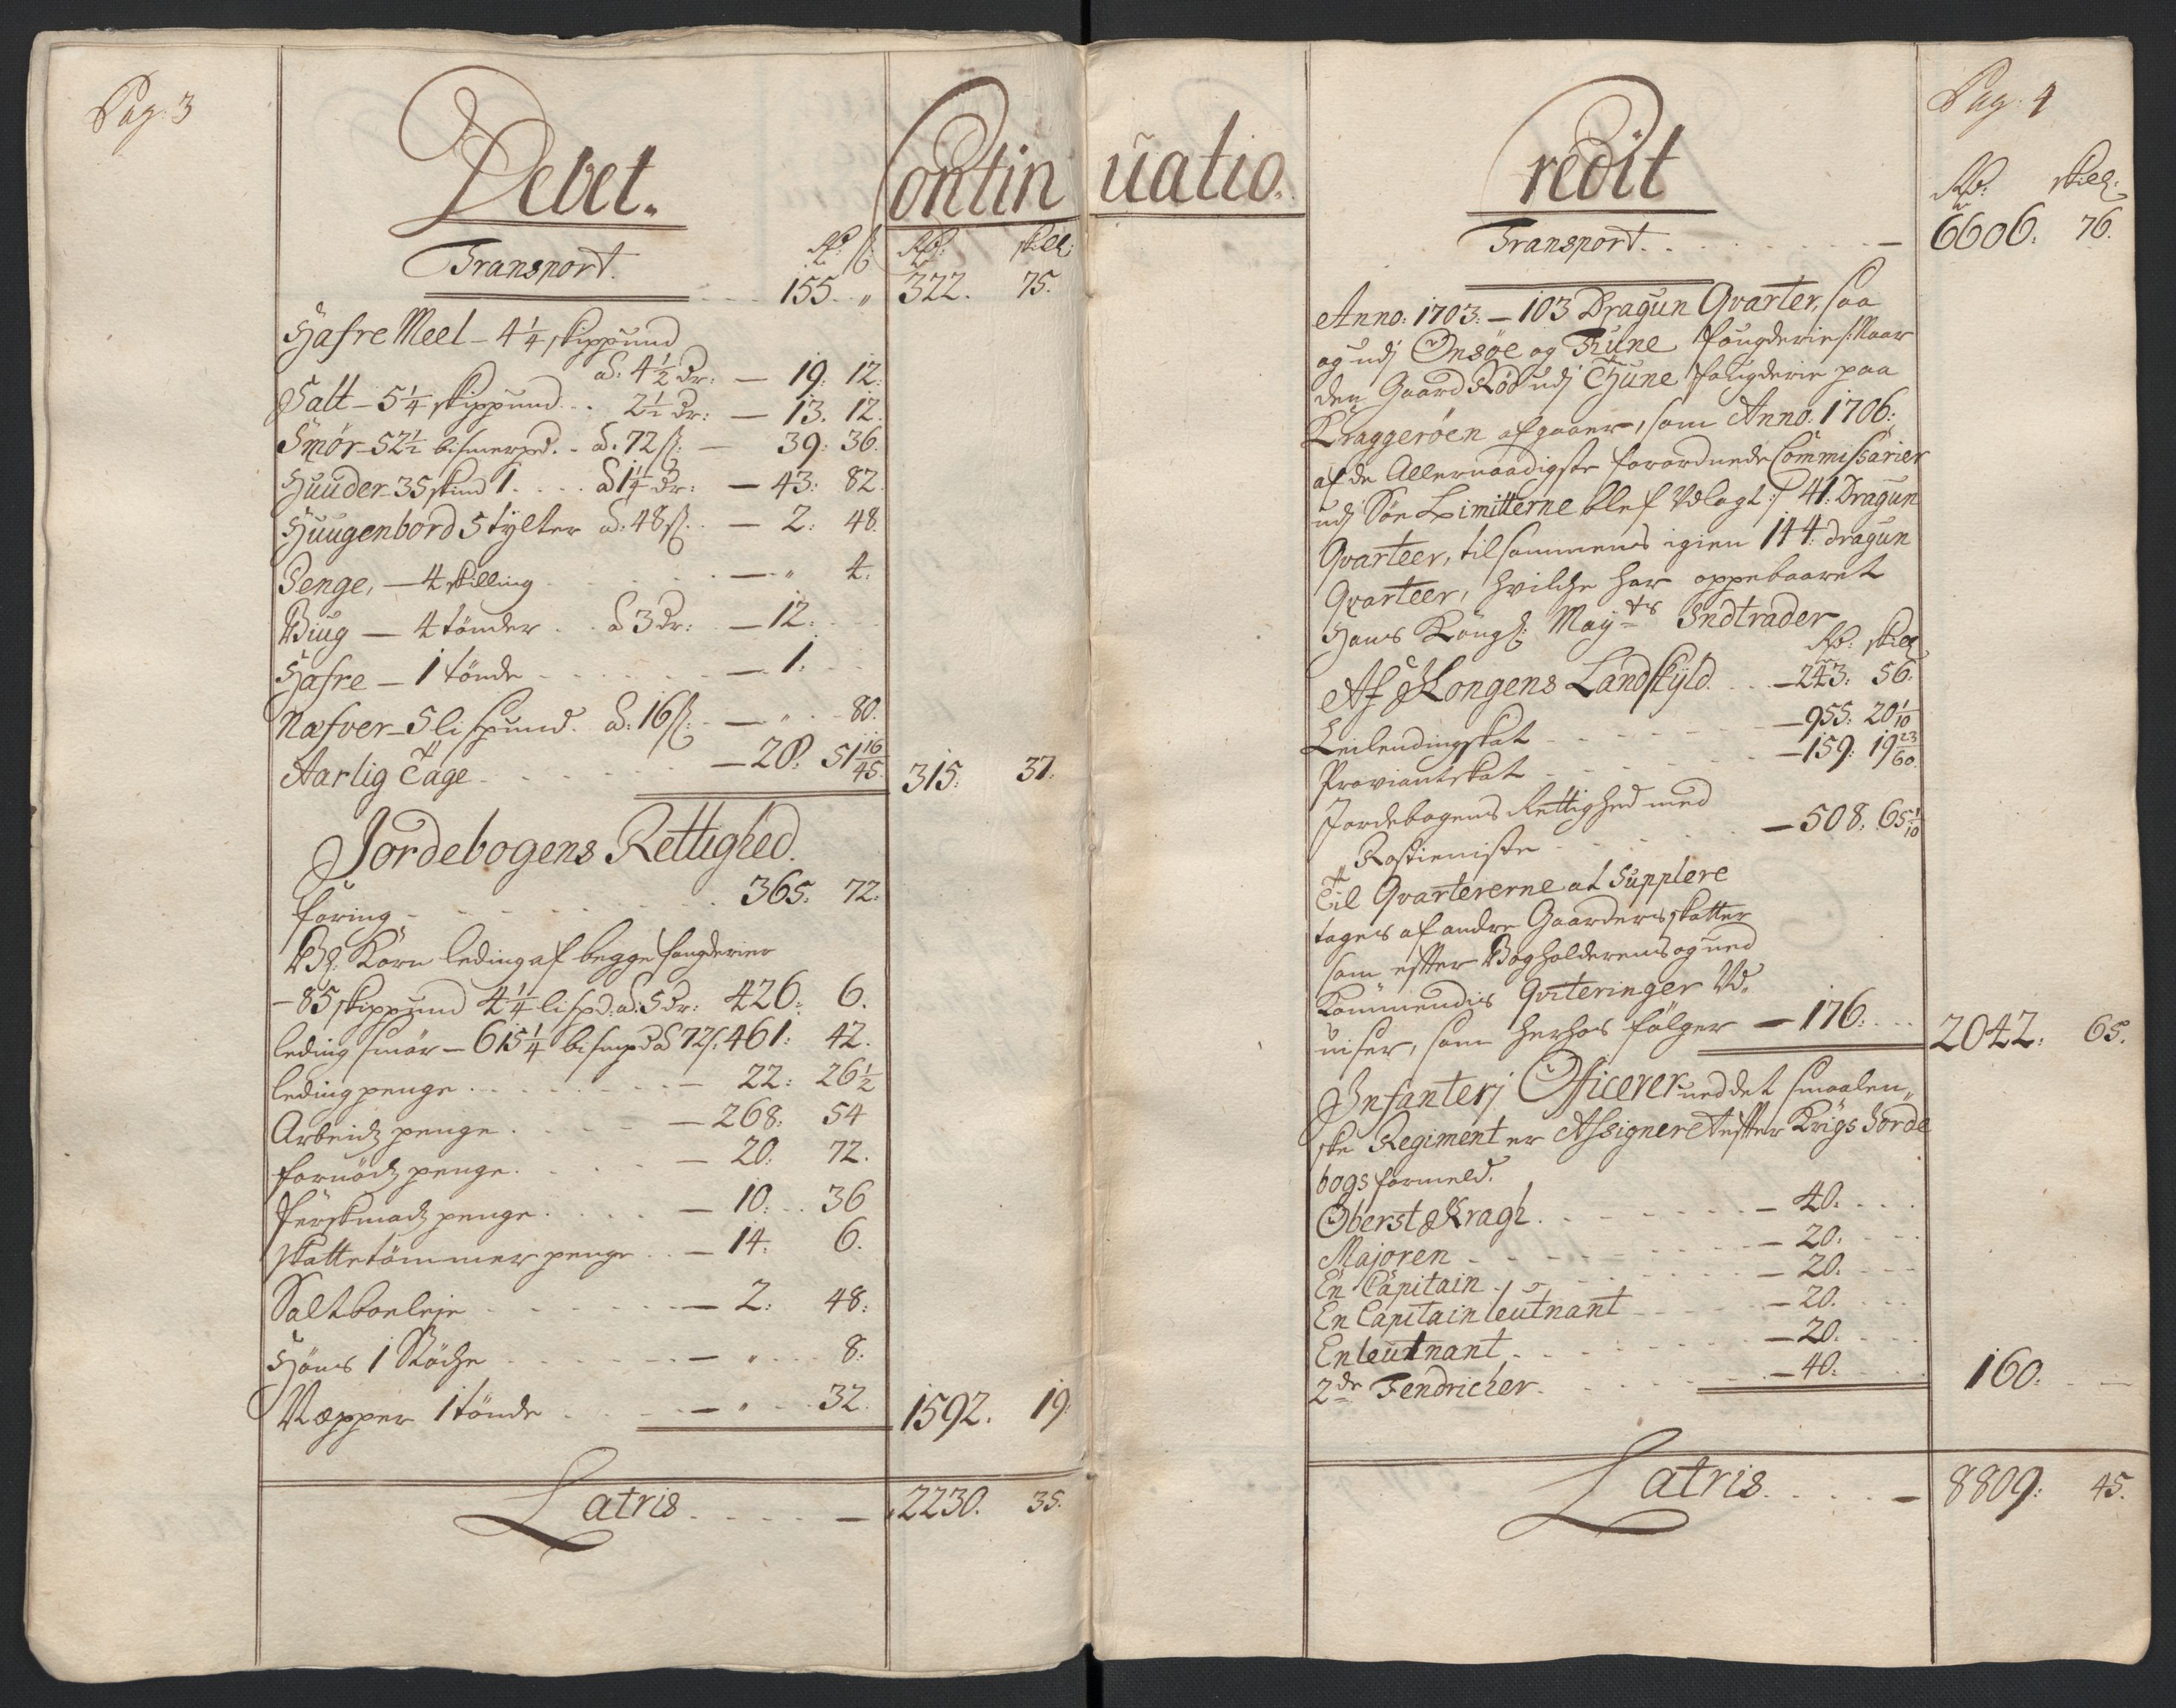 Pag: 3
Debet.
Contin
Rd: ß: Rd: skill:
Transport. 155. " 322. 75.
Hafre Meel – 4 1/4 skippund
ad: 4 1/2 Dr: — 19: 12:
Salt – 5 1/4 skippund . . 2 1/2 Dr: — 13. 12.
Smør – 52 1/2 bismerpd. . ad: 72 ß: — 39: 36.
Huuder – 35 skind 1 . . . a 1 1/4 Dr: — 43: 82.
Huugenbord 5 tylter ad: 48 ß: — 2: 48.
Penge, — 4 skilling . . . — " 4.
Biug — 4 tönder . . a 3 Dr: — 12: . .
Hafre — 1 tönde . . . — 1. . .
Næfver – 5 lispund. ad: 16 ß: — " 80.
Aarlig Tage . . . — 28: 51 16/45. 315: 37.
Jordebogens Rettighed.
Foring . . . 365. 72.
Bg: Korn leding af begge fougderier
– 85 skippund 4 1/4 lispd. ad: 5 Dr: 426: 6.
leding smör – 615 1/4 bismpd ad 72 ß: 461: 42.
leding penge . . . — 22: 26 1/2
Arbeidz penge . . . — 268: 54
fornödz penge . . . — 20: 72.
ferskmadz penge . . . — 10: 36
skattetömmer penge . . — 14: 6.
Saltboeleje . . . — 2: 48:
Höns 1 Stöche . . . — " 8:
Næpper 1 tönde . . . — " 32. 1592. 19.
Latris . . . — 2230. 35.
uatio.
Pag: 4
redit
Rd: skill:
Transport. . . . — 6606: 76.
Anno: 1703: – 103 Dragun Qvarter, saa
og udj Onsöe og Tune fougderie /: Naar
den Gaard Röd udj Thune fougderie paa
Kraggeröen afgaaer, som Anno: 1706:
af de Allernaadigste forordnede Commissarier
udj Söe Limitterne blef Udlagt :/ 41. Dragun
Qvarteer, tilsammens igien 144. dragun
Qvarteer, hvilche har oppebaaret
Hans Kongl: Mayts Indtrader
Rd: skill
Af Kongens Landskyld . . — 243: 56.
Leilendingskat . . . — 955: 20 1/10
Proviantskat . . . — 159: 19 23/60.
Jordebogens Rettighed med
Rostieniste . . . — 508. 65 1/10
Til Qvartererne at Supplere
tages af andre Gaarders skatter
som efter Bogholderens og ved
Kommendis Qviteringer Ud„
viser, som herhos følger — 176. . . 2042. 65.
Infanterj Officerer ved det smaalen„
ske Regiment er Assigneret effter Krigs Jorde
bogs formeld.
Oberst Kragh . . . — 40. . .
Majoren . . . — 20: . .
En Capitain . . . — 20. . .
En Capitain leutnant . . . — 20. . .
En leutnant . . . — 20: . .
2de Fendricher . . . — 40: . . 160. —
Latris . . . — 8809: 45.